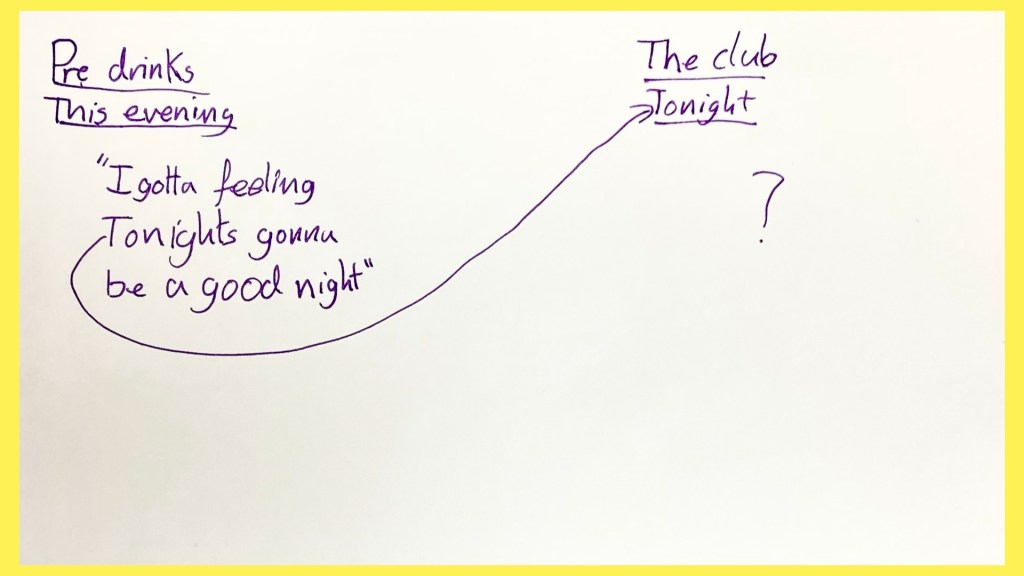 Pre drinks
This evening
"I gotta feeling
Tonights gonna
be a good night"
The club
Tonight
?